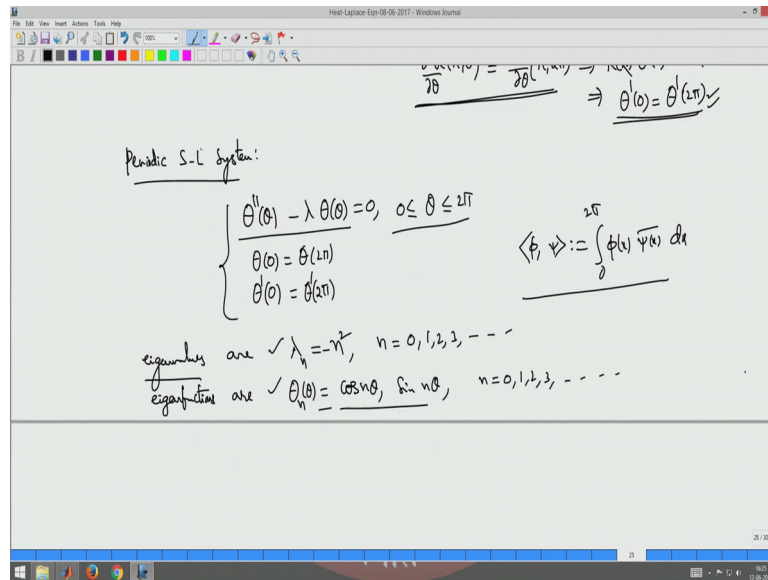 Heat-Laplace-Eqn-08-06-2017 - Windows Journal
File Edit View Insert Actions Tools Help
100%
B I
⇒ θ'(0) = θ'(2π) ✓
Periodic S-L System:
θ''(θ) - λ θ(θ) = 0, 0 ≤ θ ≤ 2π
θ(0) = θ(2π)
θ'(0) = θ'(2π)
⟨φ, ψ⟩ := ∫₀^{2π} φ(x) \overline{ψ(x)} dx
eigenvalues are ✓ λₙ = -n², n = 0, 1, 2, 3, - - -
eigenfunctions are ✓ θₙ(θ) = cos nθ, Sin nθ, n = 0, 1, 2, 3, - - - - -
25
25 / 30
16:25